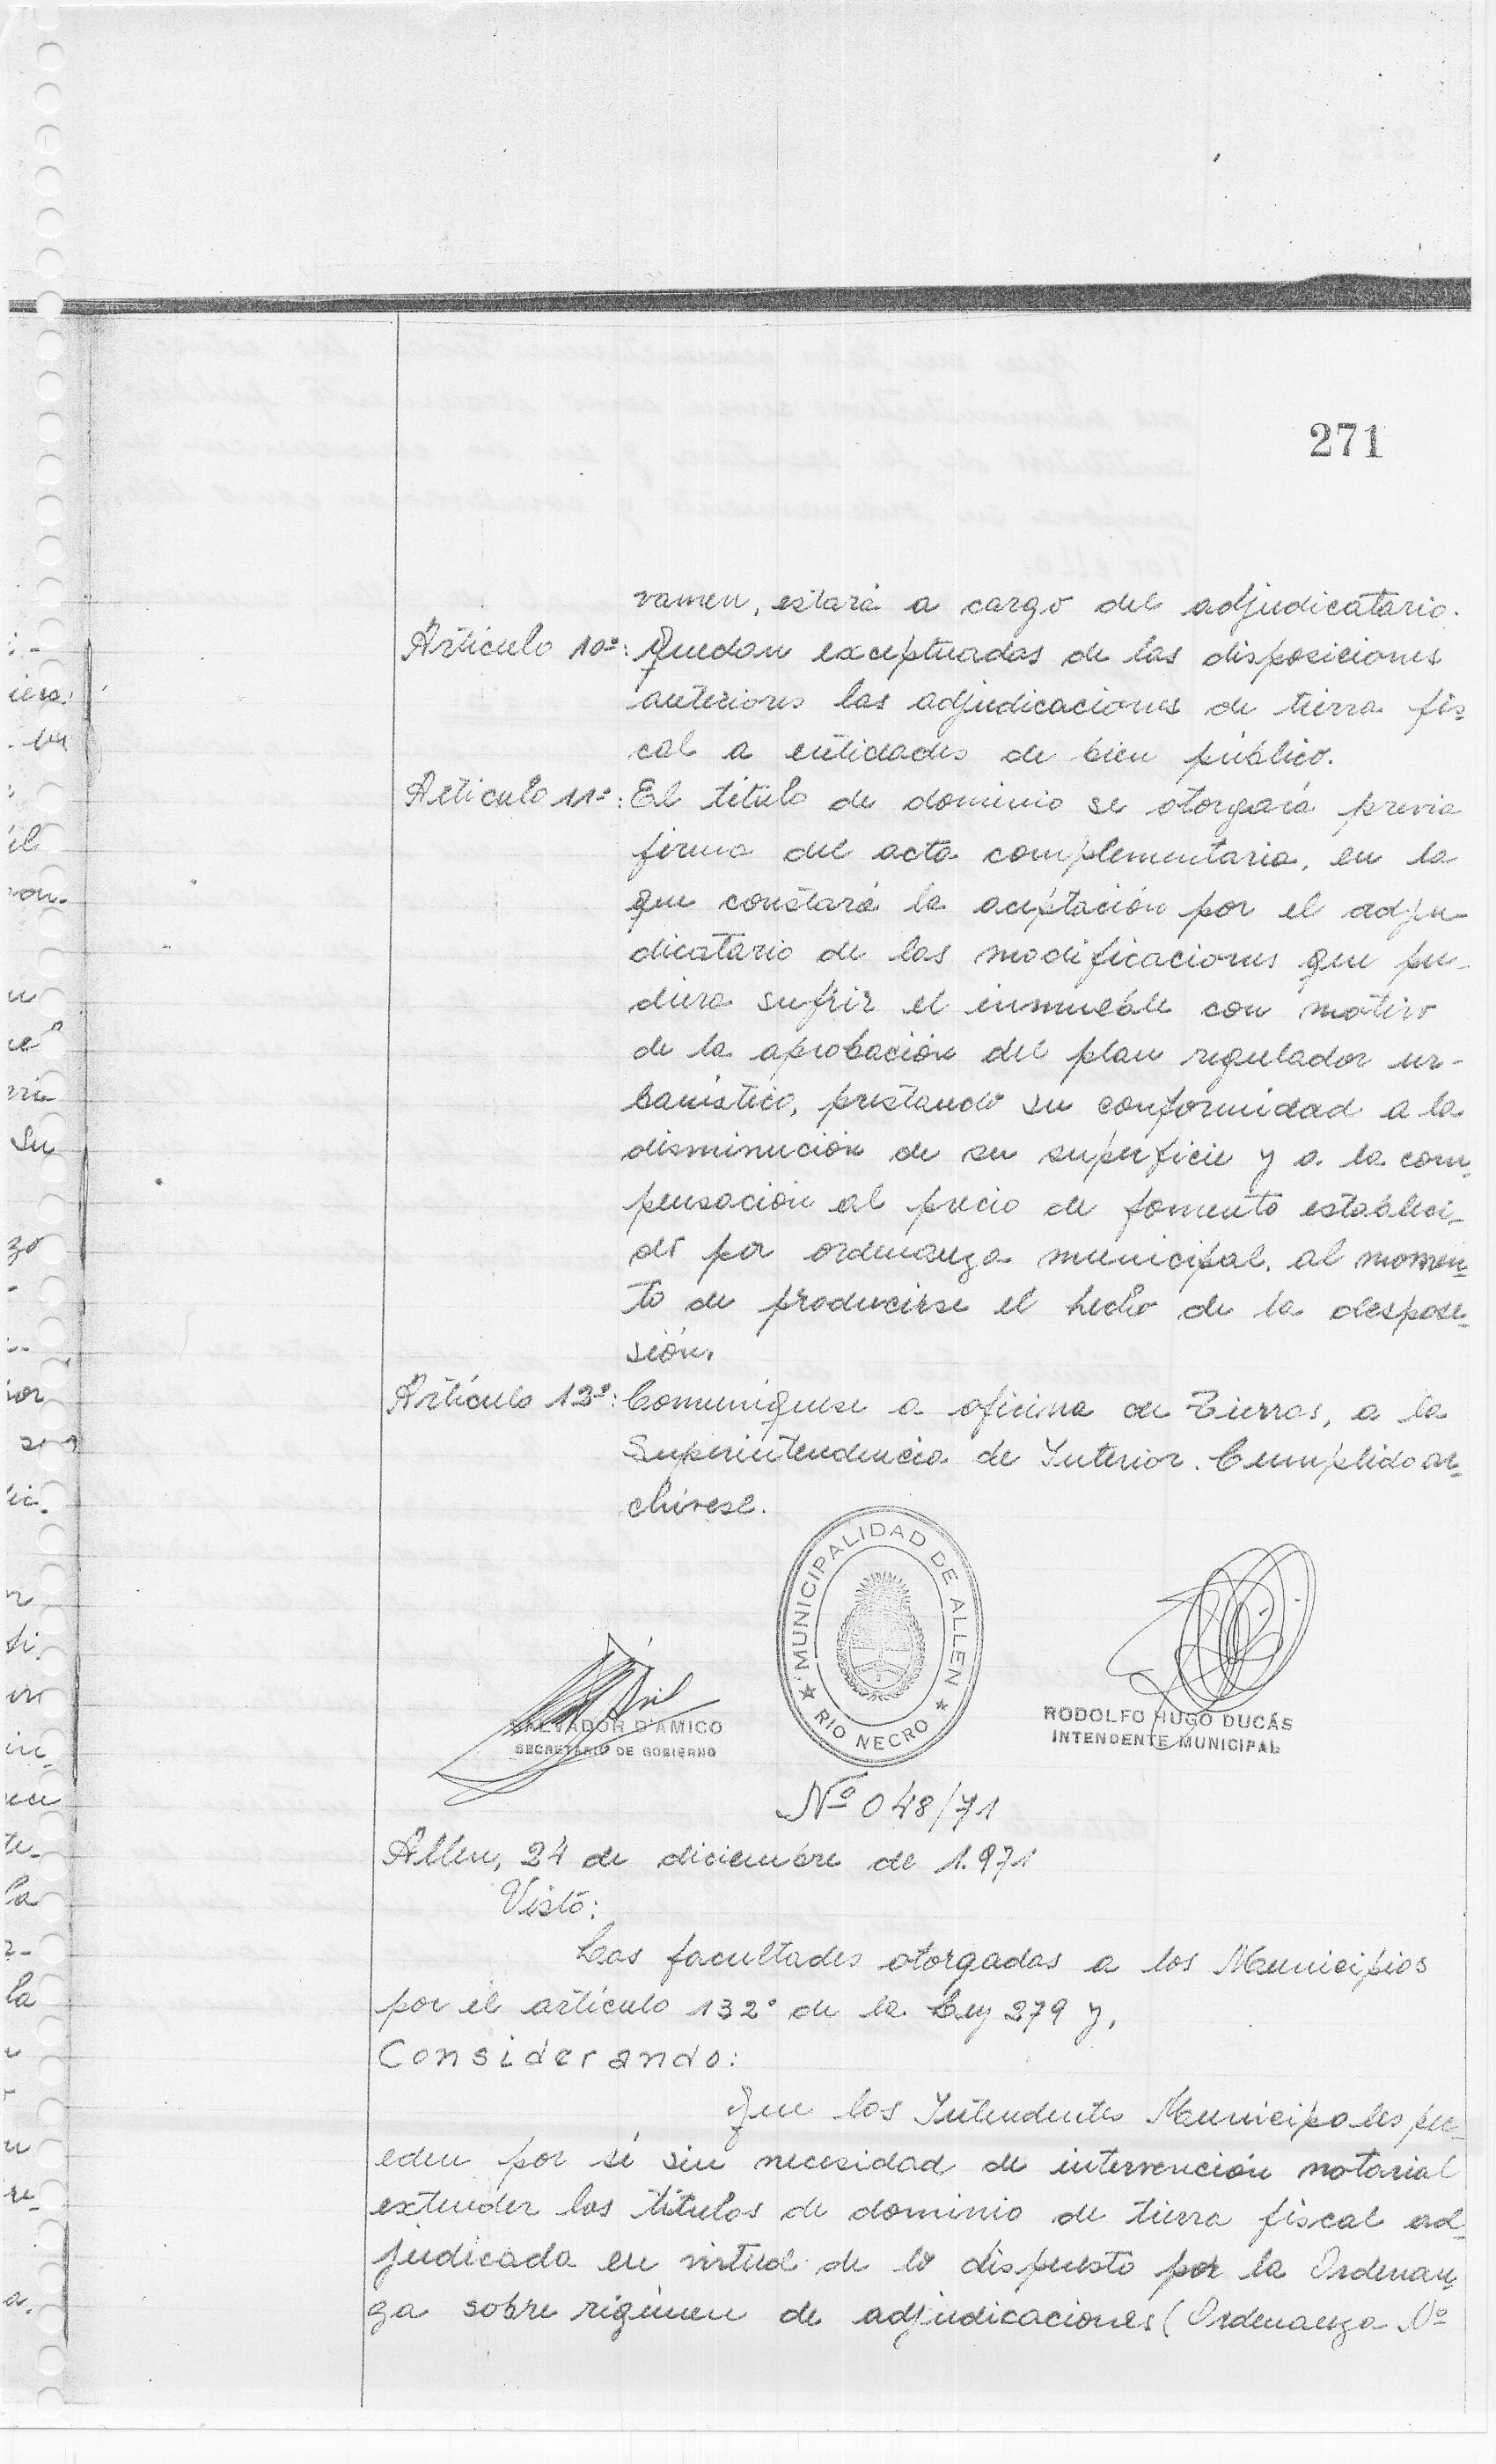 271
vamen, estará a cargo del adjudicatario.
Artículo 10º: Quedan exceptuadas de las disposiciones
anteriores las adjudicaciones de tierra fis-
cal a entidades de bien público.
Artículo 11º: El título de dominio se otorgará previa
firma del acta complementaria, en la
que constará la aceptación por el adju-
dicatario de las modificaciones que pu-
diera sufrir el inmueble con motivo
de la aprobación del plan regulador ur-
banístico, prestando su conformidad a la
disminución de su superficie y a la com-
pensación al precio de fomento estableci-
do por ordenanza municipal, al momen-
to de producirse el hecho de la despose-
sión.
Artículo 12º: Comuníquese a oficina de Tierras, a la
Superintendencia de Interior. Cumplido ar-
chívese.
MUNICIPALIDAD DE ALLEN
RIO NEGRO
SALVADOR D'AMICO
SECRETARIO DE GOBIERNO
RODOLFO HUGO DUCÁS
INTENDENTE MUNICIPAL
Nº 048/71
Allen, 24 de diciembre de 1.971
Visto:
Las facultades otorgadas a los Municipios
por el artículo 132º de la Ley 279 y,
Considerando:
Que los Intendentes Municipales pu-
eden por sí sin necesidad de intervención notarial
extender los títulos de dominio de tierra fiscal ad-
judicada en virtud de lo dispuesto por la Ordenan-
za sobre régimen de adjudicaciones (Ordenanza Nº